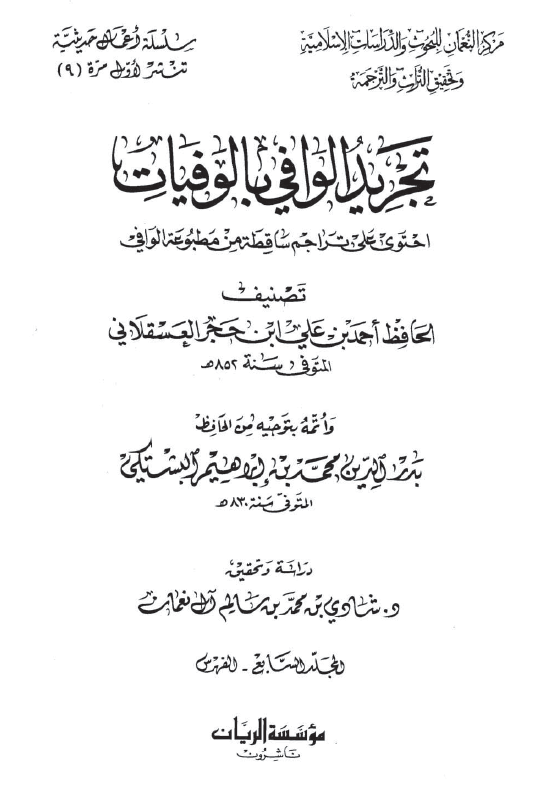 مركز النعمان للبحوث والدراسات الإسلامية
وتحقيق التراث والترجمة
سلسلة أعمال حديثية
تنشر لأول مرة (٩)
تجريد الوافي بالوفيات
احتوى على تراجم ساقطة من مطبوعة الوافي
تصنيف
الحافظ أحمد بن علي ابن حجر العسقلاني
المتوفى سنة ٨٥٢هـ
وأتمه بتوجيه من الحافظ
بدر الدين محمد بن إبراهيم البشتكي
المتوفى سنة ٨٣٠هـ
دراسة وتحقيق
د. شادي بن محمد بن سالم آل نعمان
المجلد السابع - الفهرس
مؤسسة الريان
ناشرون